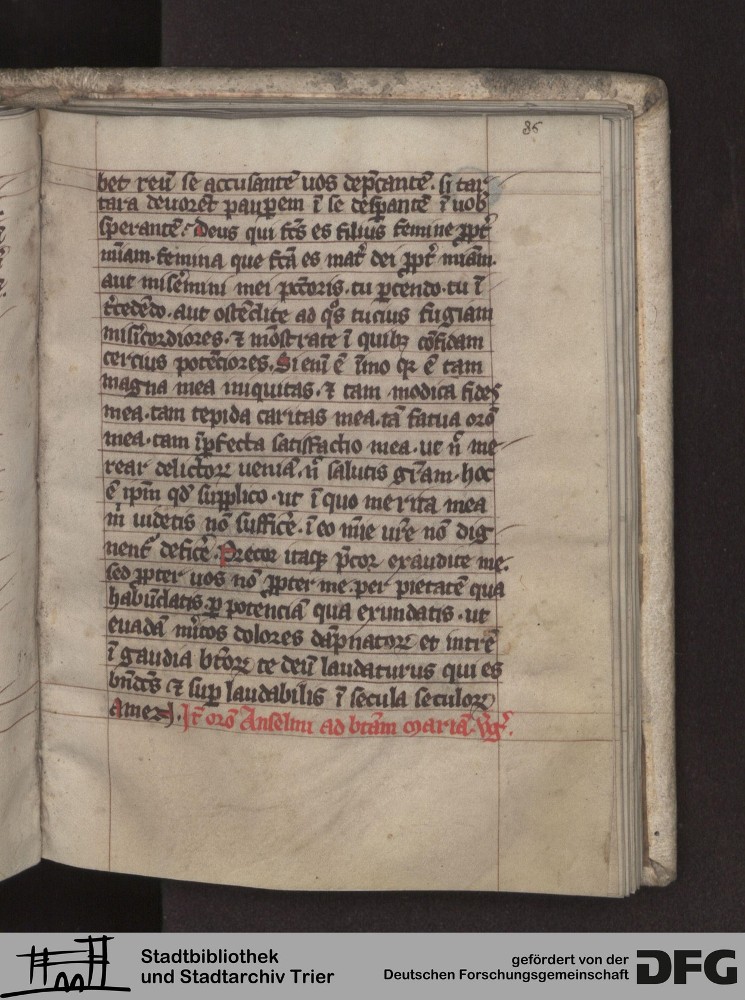 86
bet reū se accusantē uos dep̄cantē. si tar
tara deuoret paupem ī se despantē ī uob
sperantē. Deus qui fc̄s es filius femine ꝓpt̄
mīam. femina que fcā es mat̄ dei ꝓpt̄ mīam.
aut misemini mei pcc̄toris. tu ꝑcendo. tu ī
t̄cedēdo. aut ostēdite ad q̄s tucius fugiam
misicordiores. ⁊ mōstrate ī quibꝫ cōfidam
cercius potēciores. Si enī ē īmo qr ē tam
magna mea iniquitas. ⁊ tam modica fides
mea. tam tepida caritas mea. tā fatua orō
mea. tam īpfecta satisfactio mea. ut n̄ me
rear delictoꝝ ueniā. n̄ salutis grām. hoc
ē ipm̄ qd̄ supplico. ut ī quo merita mea
m̄ uidetis nō sufficē. ī eo mīe ur̄e nō dig
nent̄ deficē. Precor itaqꝫ p̄cor exaudite me.
sed ꝓpter uos nō ꝓpter me. per pietatē qua
habūdatis. ꝑ potenciā qua exundatis. ut
euadā mitos dolores dāpnatoꝝ et intrē
ī gaudia btōꝝ te deū laudaturus qui es
bn̄dc̄s ⁊ suꝑ laudabilis ī secula seculoꝝ
Amen. It̄ orō Anselmi ad btām mariā. v̄ḡ.
Stadtbibliothek
und Stadtarchiv Trier
gefördert von der
Deutschen Forschungsgemeinschaft
DFG